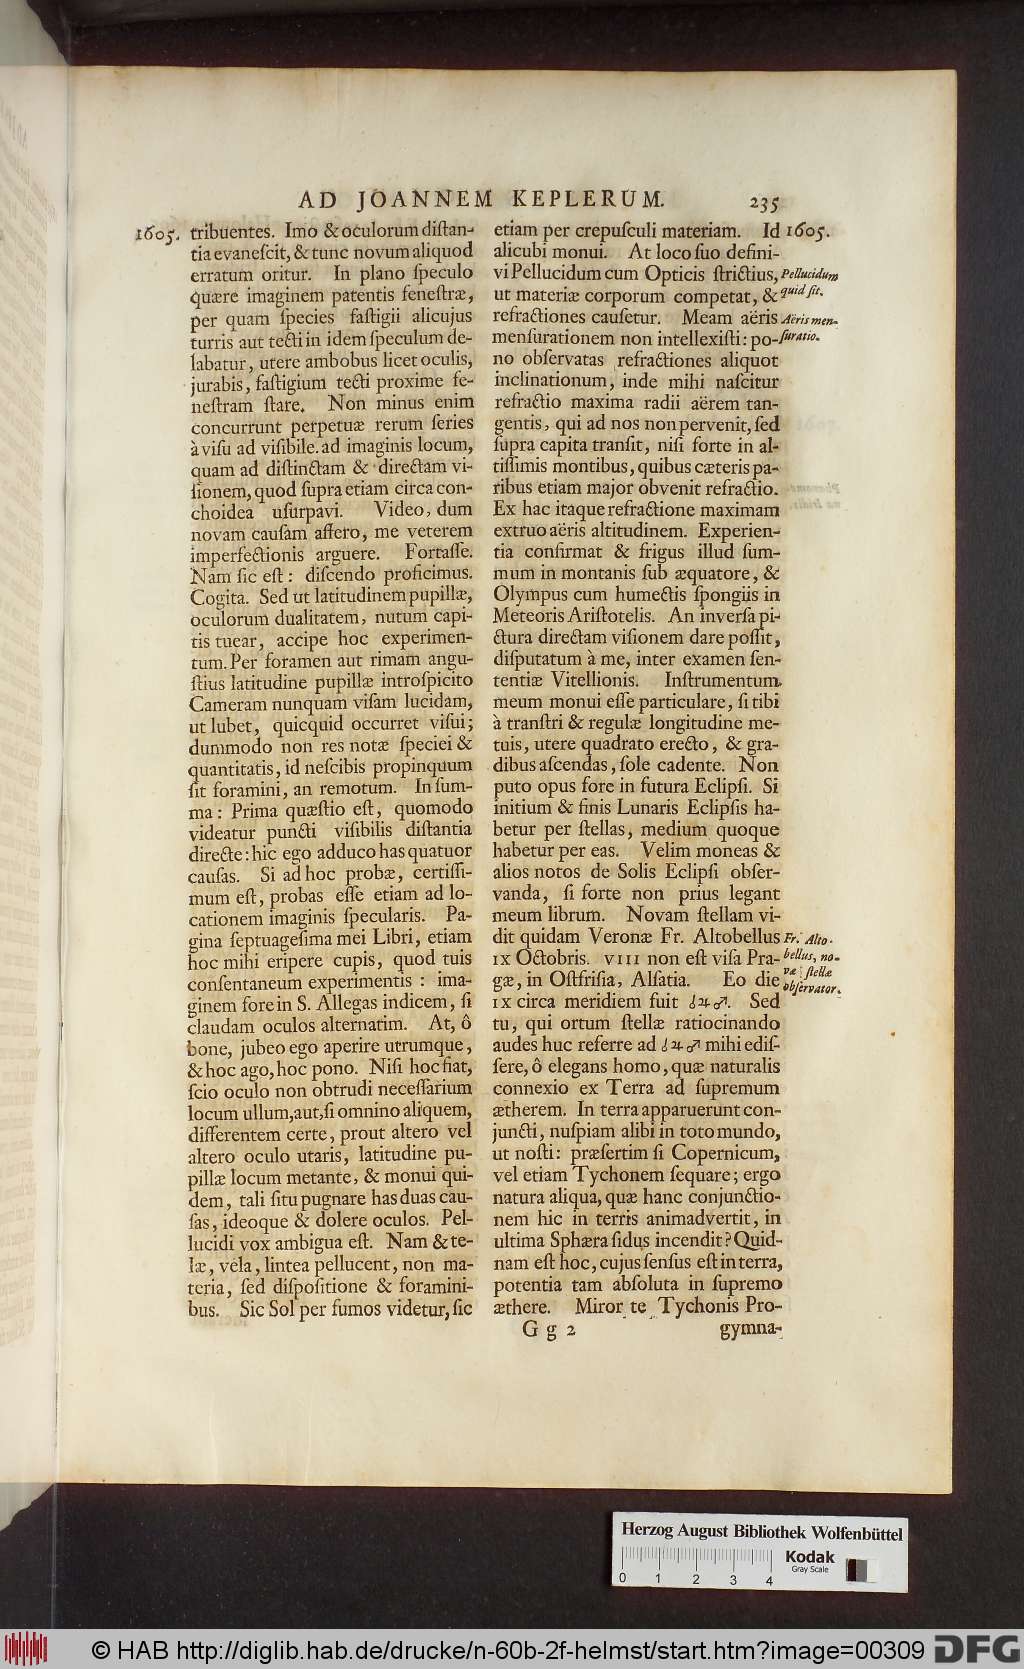 AD JOANNEM KEPLERUM. 235
1605.
tribuentes. Imo & oculorum diſtan-
tia evaneſcit, & tunc novum aliquod
erratum oritur. In plano ſpeculo
quære imaginem patentis feneſtræ,
per quam ſpecies faſtigii alicujus
turris aut tecti in idem ſpeculum de-
labatur, utere ambobus licet oculis,
jurabis, faſtigium tecti proxime fe-
neſtram ſtare. Non minus enim
concurrunt perpetuæ rerum ſeries
à viſu ad viſibile. ad imaginis locum,
quam ad diſtinctam & directam vi-
ſionem, quod ſupra etiam circa con-
choidea uſurpavi. Video, dum
novam cauſam affero, me veterem
imperfectionis arguere. Fortaſſe.
Nam ſic eſt: diſcendo proficimus.
Cogita. Sed ut latitudinem pupillæ,
oculorum dualitatem, nutum capi-
tis tuear, accipe hoc experimen-
tum. Per foramen aut rimam angu-
ſtius latitudine pupillæ introſpicito
Cameram nunquam viſam lucidam,
ut lubet, quicquid occurret viſui;
dummodo non res notæ ſpeciei &
quantitatis, id neſcibis propinquum
ſit foramini, an remotum. In ſum-
ma: Prima quæſtio eſt, quomodo
videatur puncti viſibilis diſtantia
directe: hic ego adduco has quatuor
cauſas. Si ad hoc probæ, certiſſi-
mum eſt, probas eſſe etiam ad lo-
cationem imaginis ſpecularis. Pa-
gina ſeptuageſima mei Libri, etiam
hoc mihi eripere cupis, quod tuis
conſentaneum experimentis: ima-
ginem fore in S. Allegas indicem, ſi
claudam oculos alternatim. At, ô
bone, jubeo ego aperire utrumque,
& hoc ago, hoc pono. Niſi hoc fiat,
ſcio oculo non obtrudi neceſſarium
locum ullum, aut, ſi omnino aliquem,
differentem certe, prout altero vel
altero oculo utaris, latitudine pu-
pillæ locum metante, & monui qui-
dem, tali ſitu pugnare has duas cau-
ſas, ideoque & dolere oculos. Pel-
lucidi vox ambigua eſt. Nam & te-
læ, vela, lintea pellucent, non ma-
teria, ſed diſpoſitione & foramini-
bus. Sic Sol per fumos videtur, ſic
etiam per crepuſculi materiam. Id 1605.
alicubi monui. At loco ſuo defini-
vi Pellucidum cum Opticis ſtrictius, Pellucidum
ut materiæ corporum competat, & quid ſit.
refractiones cauſetur. Meam aëris Aëris men-
menſurationem non intellexiſti: po- ſuratio.
no obſervatas refractiones aliquot
inclinationum, inde mihi naſcitur
refractio maxima radii aërem tan-
gentis, qui ad nos non pervenit, ſed
ſupra capita tranſit, niſi forte in al-
tiſſimis montibus, quibus cæteris pa-
ribus etiam major obvenit refractio.
Ex hac itaque refractione maximam
extruo aëris altitudinem. Experien-
tia confirmat & frigus illud ſum-
mum in montanis ſub æquatore, &
Olympus cum humectis ſpongiis in
Meteoris Ariſtotelis. An inverſa pi-
ctura directam viſionem dare poſſit,
diſputatum à me, inter examen ſen-
tentiæ Vitellionis. Inſtrumentum
meum monui eſſe particulare, ſi tibi
à tranſtri & regulæ longitudine me-
tuis, utere quadrato erecto, & gra-
dibus aſcendas, ſole cadente. Non
puto opus fore in futura Eclipſi. Si
initium & finis Lunaris Eclipſis ha-
betur per ſtellas, medium quoque
habetur per eas. Velim moneas &
alios notos de Solis Eclipſi obſer-
vanda, ſi forte non prius legant
meum librum. Novam ſtellam vi-
dit quidam Veronæ Fr. Altobellus Fr. Alto-
IX Octobris. VIII non eſt viſa Pra- bellus, no-
gæ, in Oſtfriſia, Alſatia. Eo die væ ſtellæ
IX circa meridiem fuit ☌♃♂. Sed obſervator.
tu, qui ortum ſtellæ ratiocinando
audes huc referre ad ☌♃♂ mihi ediſ-
ſere, ô elegans homo, quæ naturalis
connexio ex Terra ad ſupremum
ætherem. In terra apparuerunt con-
juncti, nuſpiam alibi in toto mundo,
ut noſti: præſertim ſi Copernicum,
vel etiam Tychonem ſequare; ergo
natura aliqua, quæ hanc conjunctio-
nem hic in terris animadvertit, in
ultima Sphæra ſidus incendit? Quid-
nam eſt hoc, cujus ſenſus eſt in terra,
potentia tam abſoluta in ſupremo
æthere. Miror te Tychonis Pro-
G g 2 gymna-
Herzog August Bibliothek Wolfenbüttel
Kodak
Gray Scale
0 1 2 3 4
© HAB http://diglib.hab.de/drucke/n-60b-2f-helmst/start.htm?image=00309 DFG